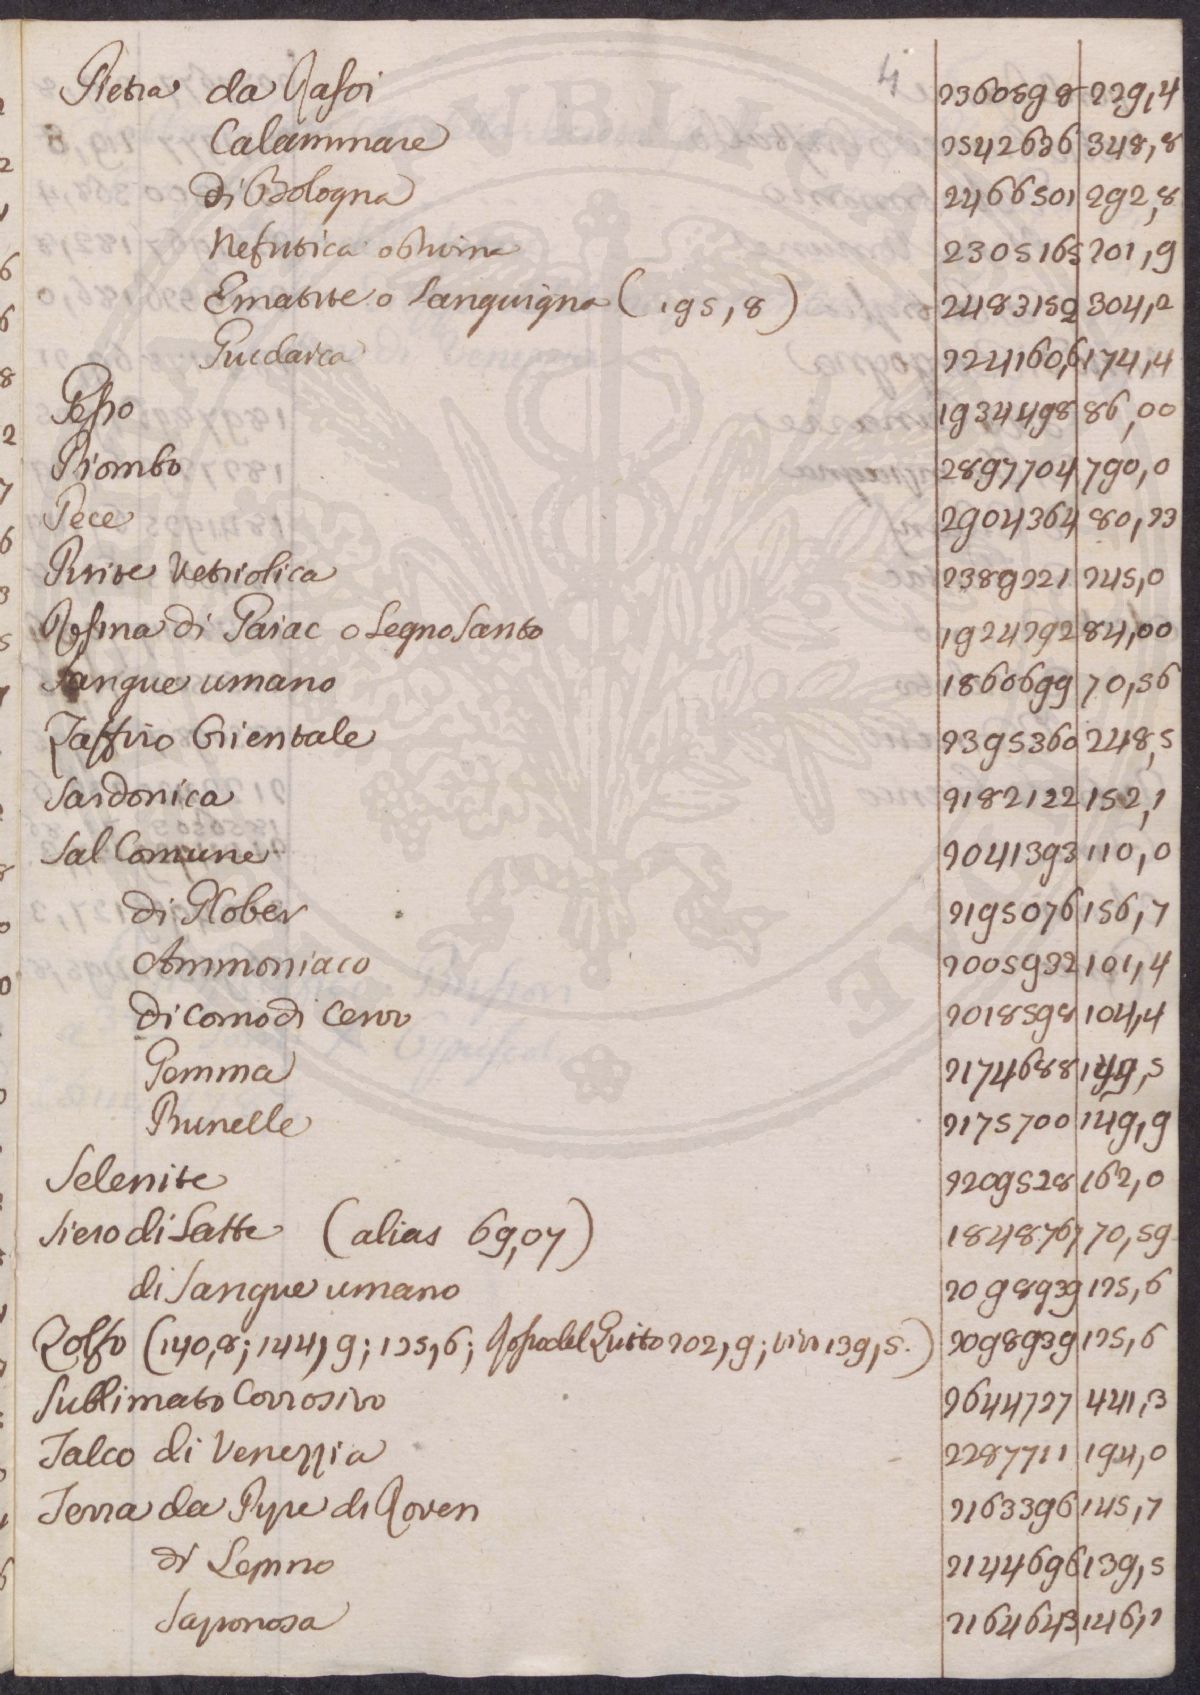 4
Pietra da Rasoi 2360898 229,4
Calaminare 2542636 348,8
di Bologna 2466501 292,8
Nefritica o bhuina 2305165 201,9
Ematite o Sanguigna (195,8) 2483152 304,2
Giudaica 2241606 174,4
Pesso 1934498 86,00
Piombo 2897704 790,0
Pece 2904364 80,23
Pirite Vetriolica 2389221 245,0
Resina di Gaiac o Legno Santo 1924292 84,00
Sangue umano 1860699 70,56
Zaffiro Orientale 2395360 248,5
Sardonica 2182122 152,1
Sal Comune 2041393 110,0
di Glober 2195076 156,7
Ammoniaco 2005932 101,4
di corno di Cervo 2018598 104,4
Gemma 2174688 149,5
Prunelle 2175700 149,9
Selenite 2209528 162,0
Siero di Latte (alias 69,07) 1848767 70,59
di Sangue umano 2098939 125,6
Zolfo (140,8; 144,9; 125,6; del Quito 202,9; vivo 139,5.) 2098939 125,6
Sublimato Corrosivo 2644727 441,3
Talco di Venezzia 2287711 194,0
Terra da Pype di Roven 2163396 145,7
di Lemno 2144696 139,5
Saponosa 2164643 146,1